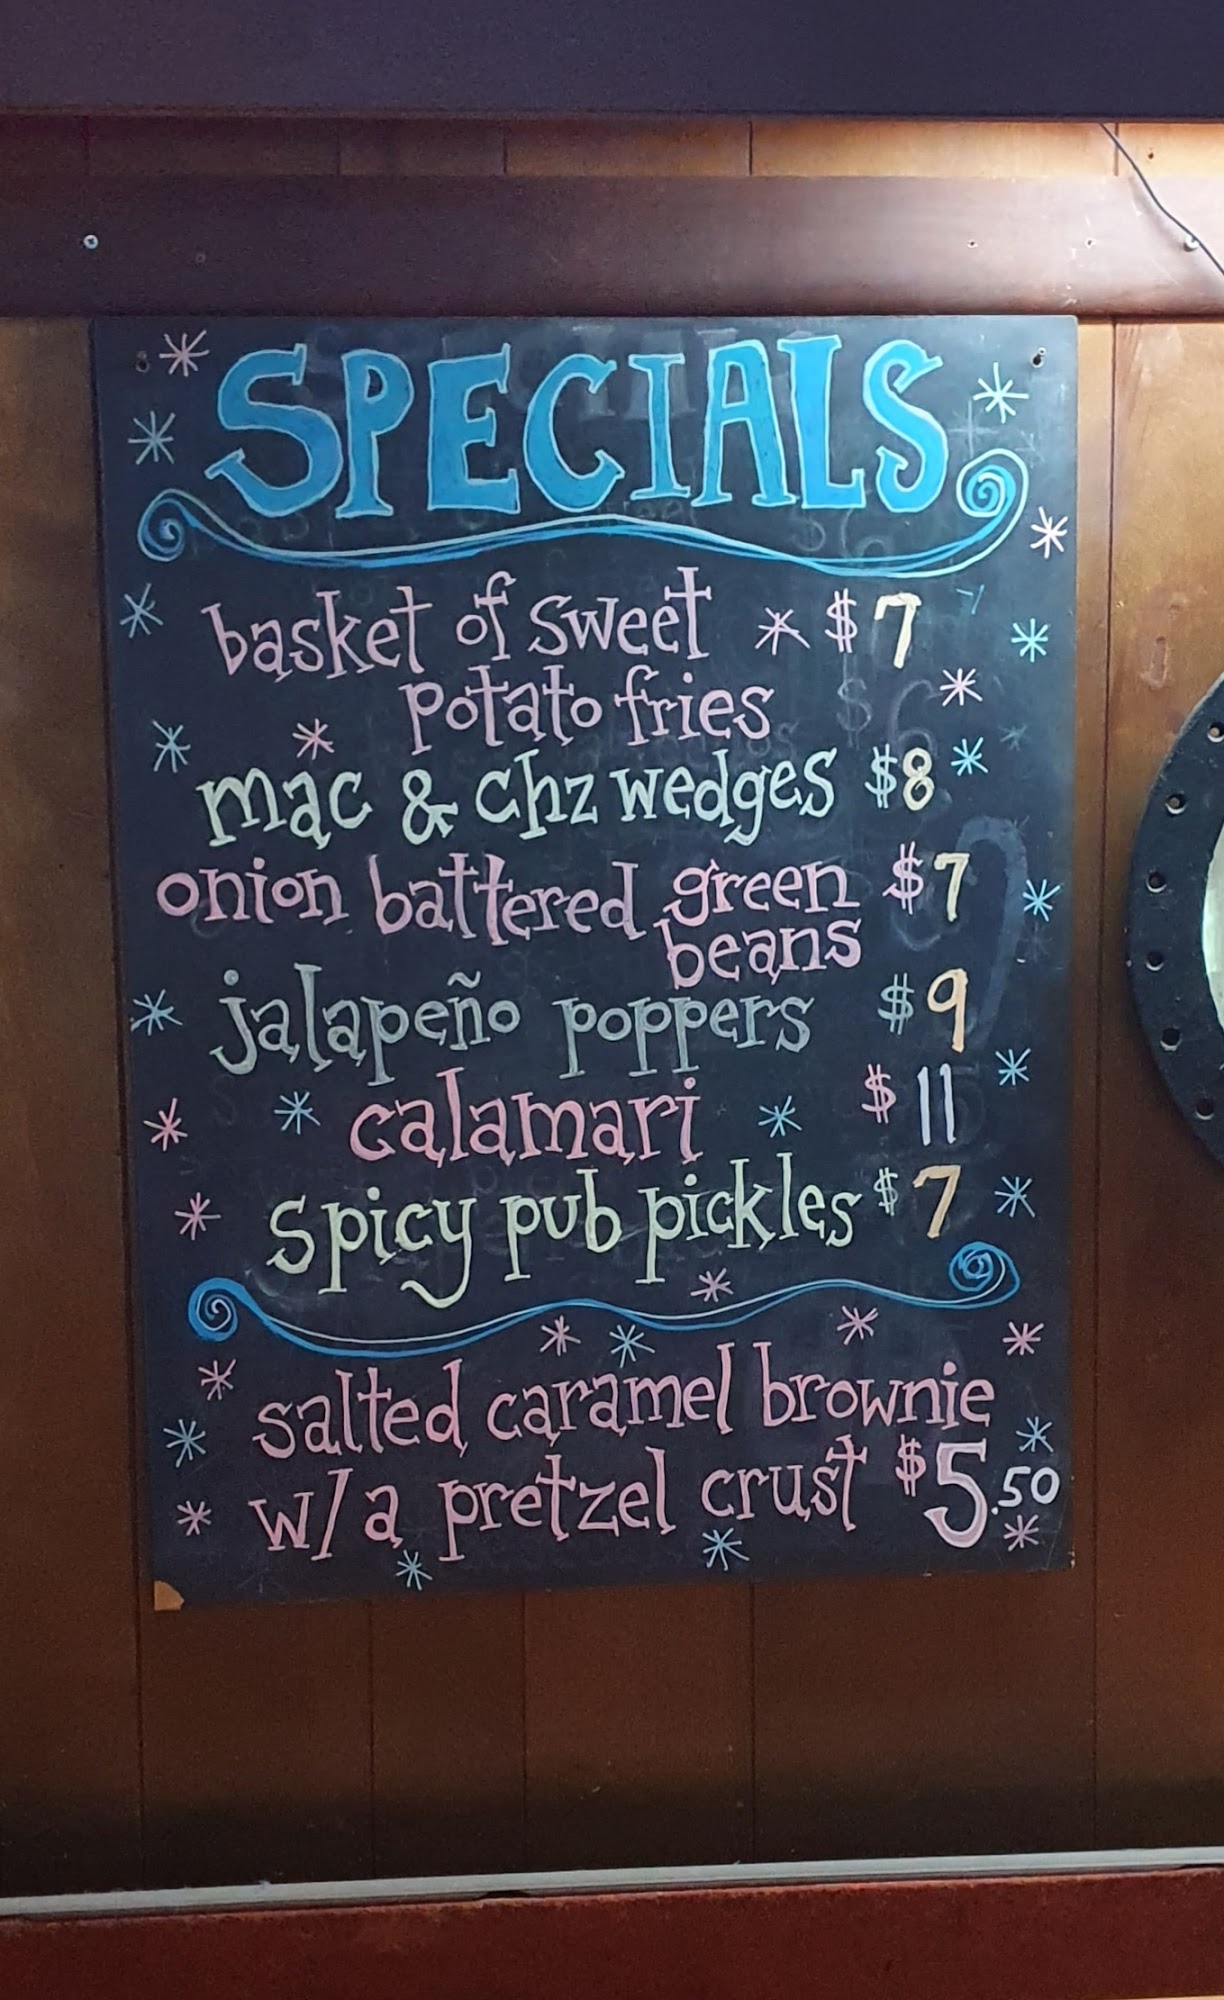 SPECIALS
basket of sweet $7
potato fries
mac & chz wedges $8
onion battered green $7
beans
jalapeño poppers $9
calamari $11
spicy pub pickles $7
salted caramel brownie
w/a pretzel crust $5.50